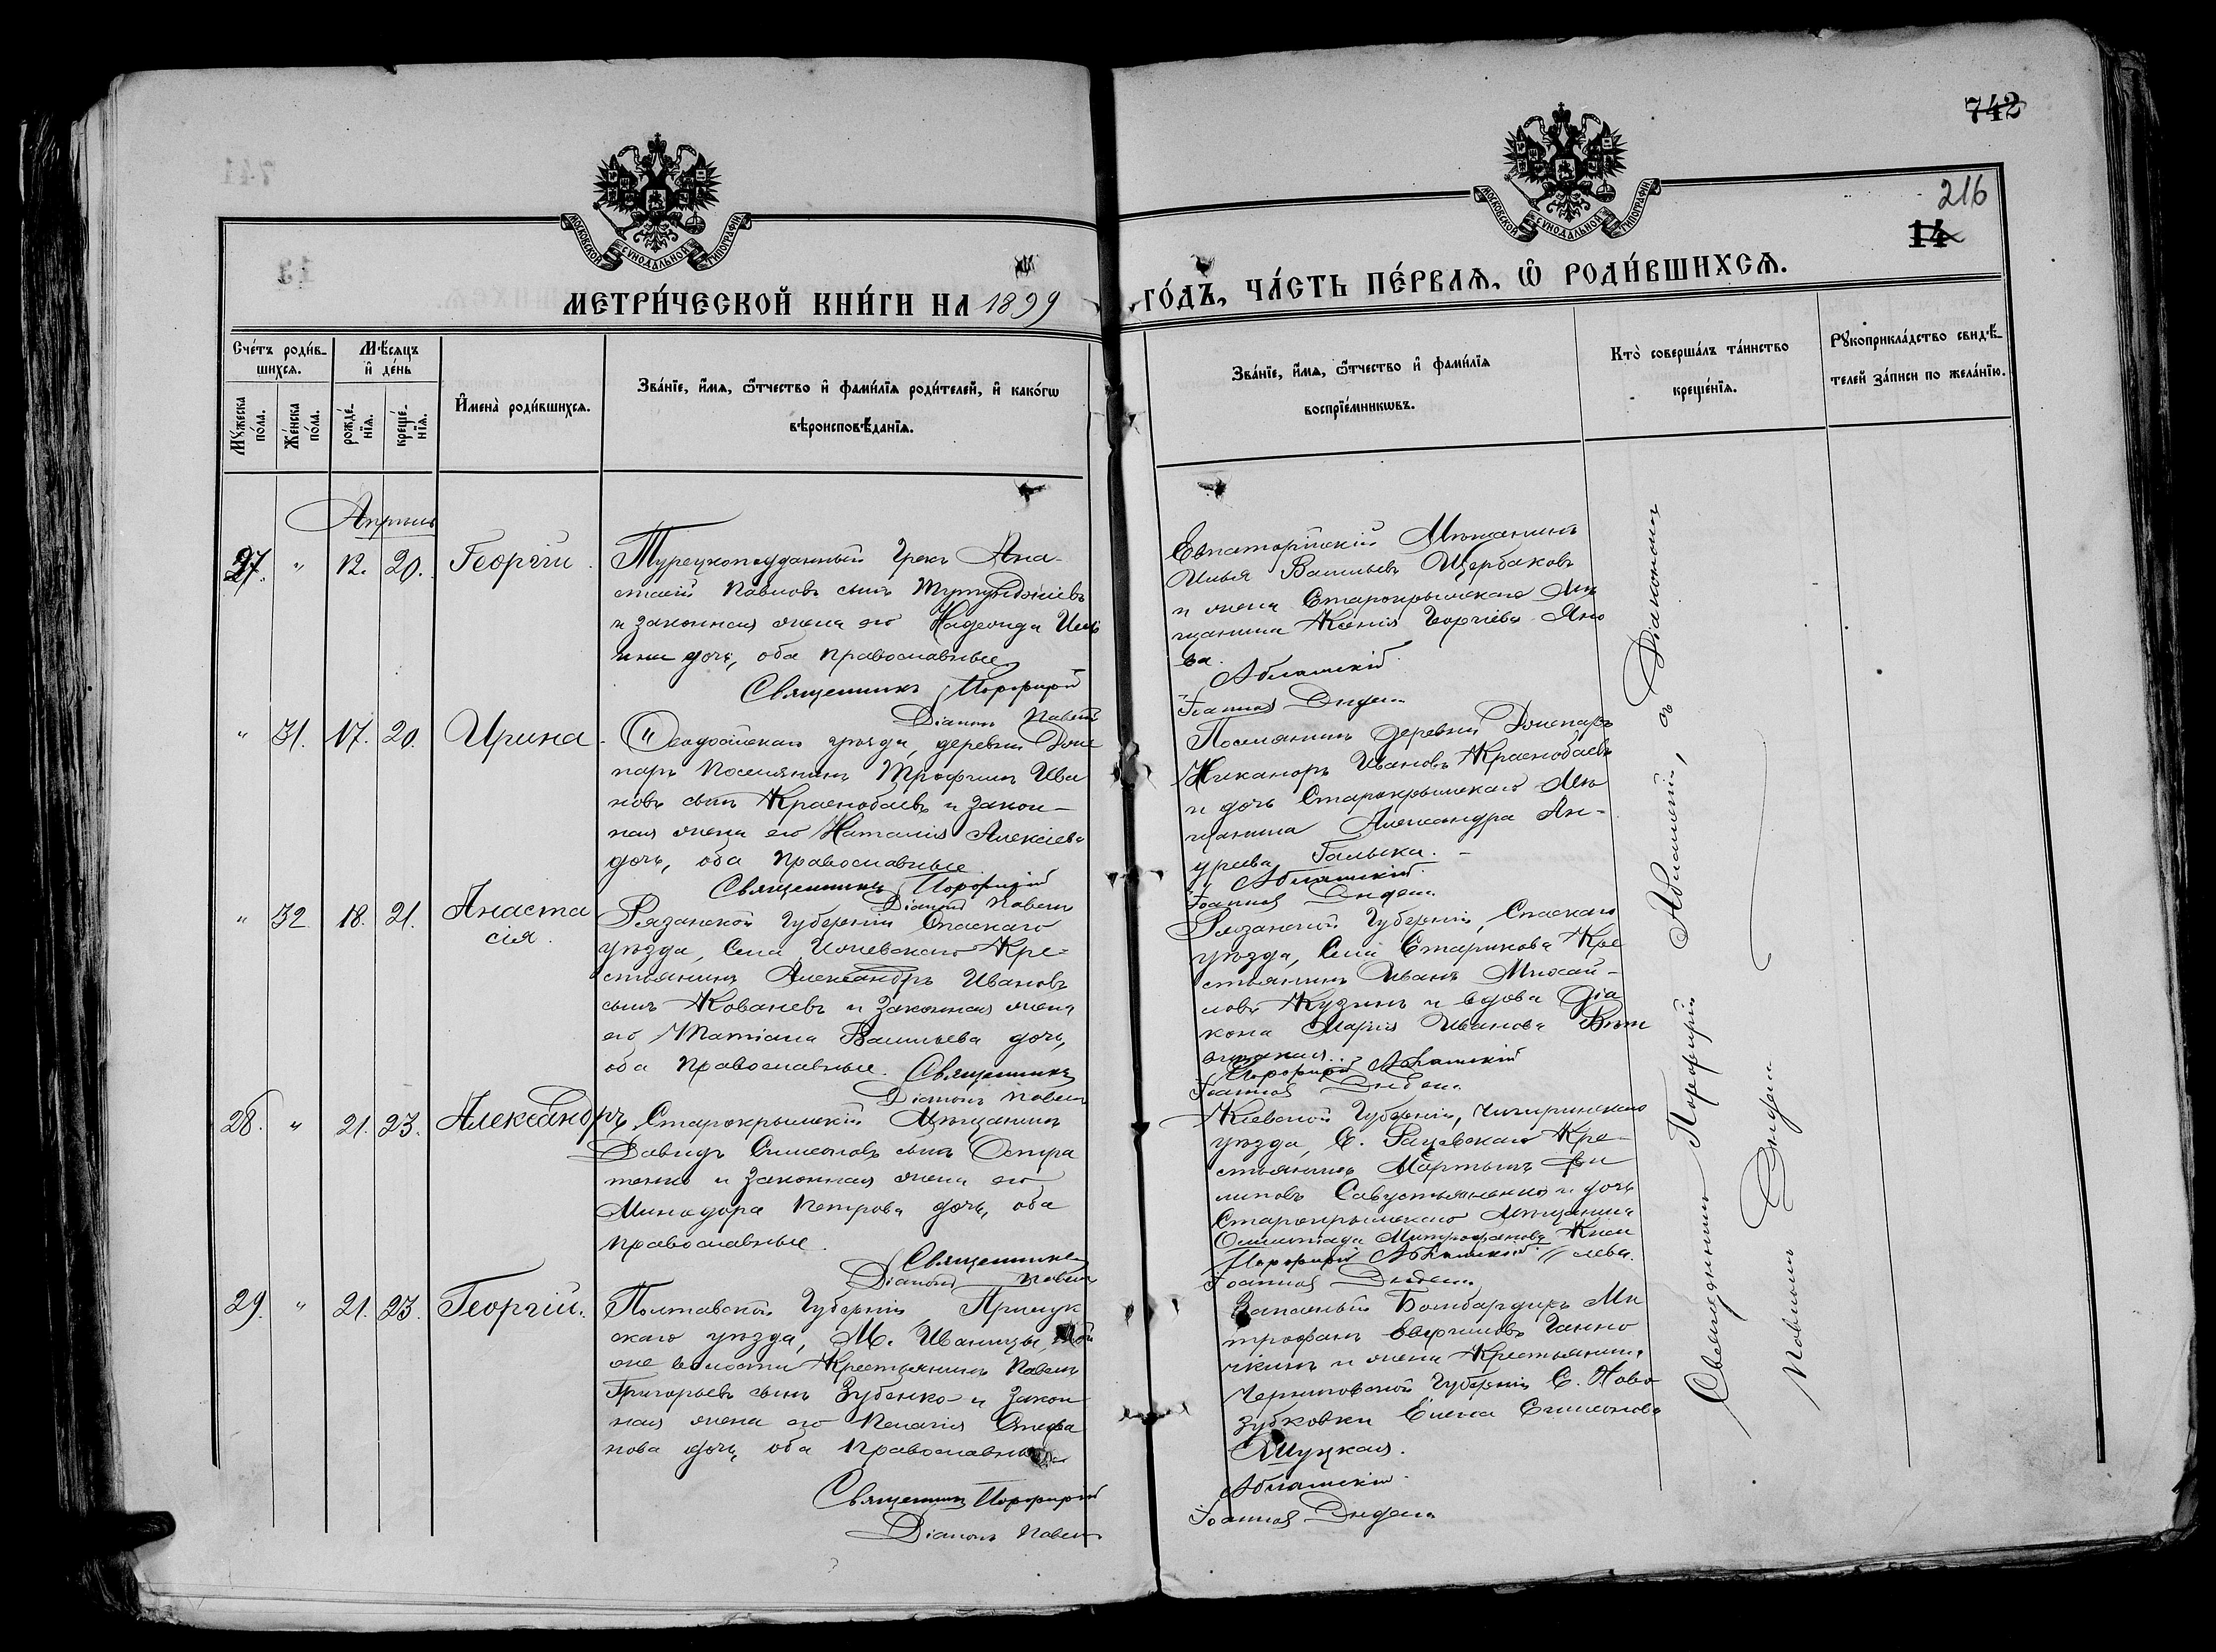 742
216
14
МОСКОВСКОЙ СѴНОДАЛЬНОЙ ТИПОГРАФІИ
МОСКОВСКОЙ СѴНОДАЛЬНОЙ ТИПОГРАФІИ
МЕТРИ́ЧЕСКОЙ КНИ́ГИ НА 1899
ГО́ДЪ, ЧА́СТЬ ПЕ́РВАЯ, Ѿ РОДИ́ВШИХСЯ.
Сче́тъ роди́вшихся.
Мѣ́сяцъ и де́нь
Мꙋ́жеска по́ла.
Же́нска по́ла.
рожде́нїя.
креще́нїя.
И҆мена̀ роди́вшихся.
Зва́нїе, и҆́мя, ѻ҆́тчество и҆ фами́лїя роди́телей, и҆ како́гѡ
вѣроисповѣ́данїя.
Зва́нїе, и҆́мя, ѻ҆́тчество и҆ фами́лїя
воспрїе́мникѡвъ.
Кто̀ соверша́лъ та́инство
креще́нїя.
Рꙋкоприкла́дство свидѣ́-
телей за́писи по жела́нїю.
Апрѣль
27. " 12. 20. Георгій.
Турецкоподданный Грекъ Ана-
стасій Павловъ сынъ Тютюнджіевъ
и законная жена его Надежда Иль
ина дочь, оба православные
Священникъ Порфирій
Діаконъ Павелъ
Евпаторійскій Мѣщанинъ
Илья Васильевъ Щербаковъ
и жена Старокрымскаго Мѣ
щанина Ксенія Георгіева Яно
ва.
Аблашскій
" 31. 17. 20. Ирина
Ѳеодосійскаго уѣзда, деревни
Поселянинъ Трофимъ Ива
новъ сынъ Краснобаевъ и закон-
ная жена его Наталія Алексѣева
дочь, оба православные
Священникъ Порфирій
Діаконъ Павелъ
Поселянинъ деревни
Никаноръ Ивановъ Краснобаевъ
и дочь Старокрымскаго Мѣ
щанина Александра Ан-
дреева Галыка.
Аблашскій
" 32 18. 21. Анаста
сія.
Рязанской Губерніи Спаскаго
уѣзда, Села Кре-
стьянинъ Александръ Ивановъ
сынъ Кованевъ и законная жена
его Татіана Васильева дочь,
оба православные. Священникъ
Діаконъ Павелъ
Рязанской Губерніи, Спаскаго
уѣзда, Села Старикова Кре
стьянинъ Иванъ Михай-
ловъ Кузинъ и вдова Діа
кона Марія Иванова
Порфирій Аблашскій
28. " 21. 23. Александръ
Старокрымскій Мѣщанинъ
Давидъ Симеоновъ сынъ Остра
тенко и законная жена его
Минодора Петрова дочь, оба
православные.
Священникъ
Діаконъ Павелъ
Кіевской Губерніи, Чигиринскаго
уѣзда, С. Рацевскаго Кре-
стьянинъ Мартынъ Фи
липовъ Савустьяненко и дочь
Старокрымскаго Мѣщанина
Олимпіада Митрофанова
Порфирій Аблашскій
29. " 21. 23. Георгій.
Полтавской Губерніи Прилук
скаго уѣзда, М. Иваницы, той
же волости Крестьянинъ Павелъ
Григорьевъ сынъ Зубенко и закон
ная жена его Пелагія Стефа
нова дочь, оба православные
Священникъ Порфирій
Діаконъ Павелъ
Запасный Бомбардиръ Ми
трофанъ Евфимовъ Ганно
чкинъ и жена Крестьянина
Черниговской Губерніи С. Ново
зубковки Елена Симеонова
Аблашскій
Священникъ Порфирій Аблашскій, съ Діакономъ
Павломъ